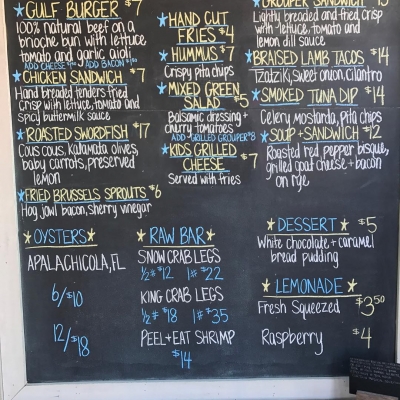 GULF BURGER $7
100% natural beef on a
brioche bun with lettuce
tomato and garlic aioli
ADD CHEESE ADD BACON
CHICKEN SANDWICH $7
Hand breaded tenders fried
crisp with lettuce, tomato and
spicy buttermilk sauce
ROASTED SWORDFISH $17
Cous cous, Kalamata olives,
baby carrots, preserved
lemon
FRIED BRUSSELS SPROUTS $6
Hog jowl bacon, sherry vinegar
HAND CUT
FRIES $4
HUMMUS $7
Crispy pita chips
MIXED GREEN
SALAD $5
Balsamic dressing +
cherry tomatoes
ADD GRILLED GROUPER $8
KIDS GRILLED
CHEESE $7
Served with fries
GROUPER SANDWICH
Lightly breaded and fried crisp
with lettuce, tomato and
lemon dill sauce
BRAISED LAMB TACOS $14
Tzadziki, sweet onion, cilantro
SMOKED TUNA DIP $14
Celery, mostarda, pita chips
SOUP + SANDWICH $12
Roasted red pepper bisque,
grilled goat cheese + bacon
on rye
OYSTERS
APALACHICOLA, FL
6/$10
12/$18
RAW BAR
SNOW CRAB LEGS
1/2# $12 1# $22
KING CRAB LEGS
1/2# $18 1# $35
PEEL + EAT SHRIMP
$14
DESSERT $5
White chocolate + caramel
bread pudding
LEMONADE
Fresh Squeezed $3.50
Raspberry $4